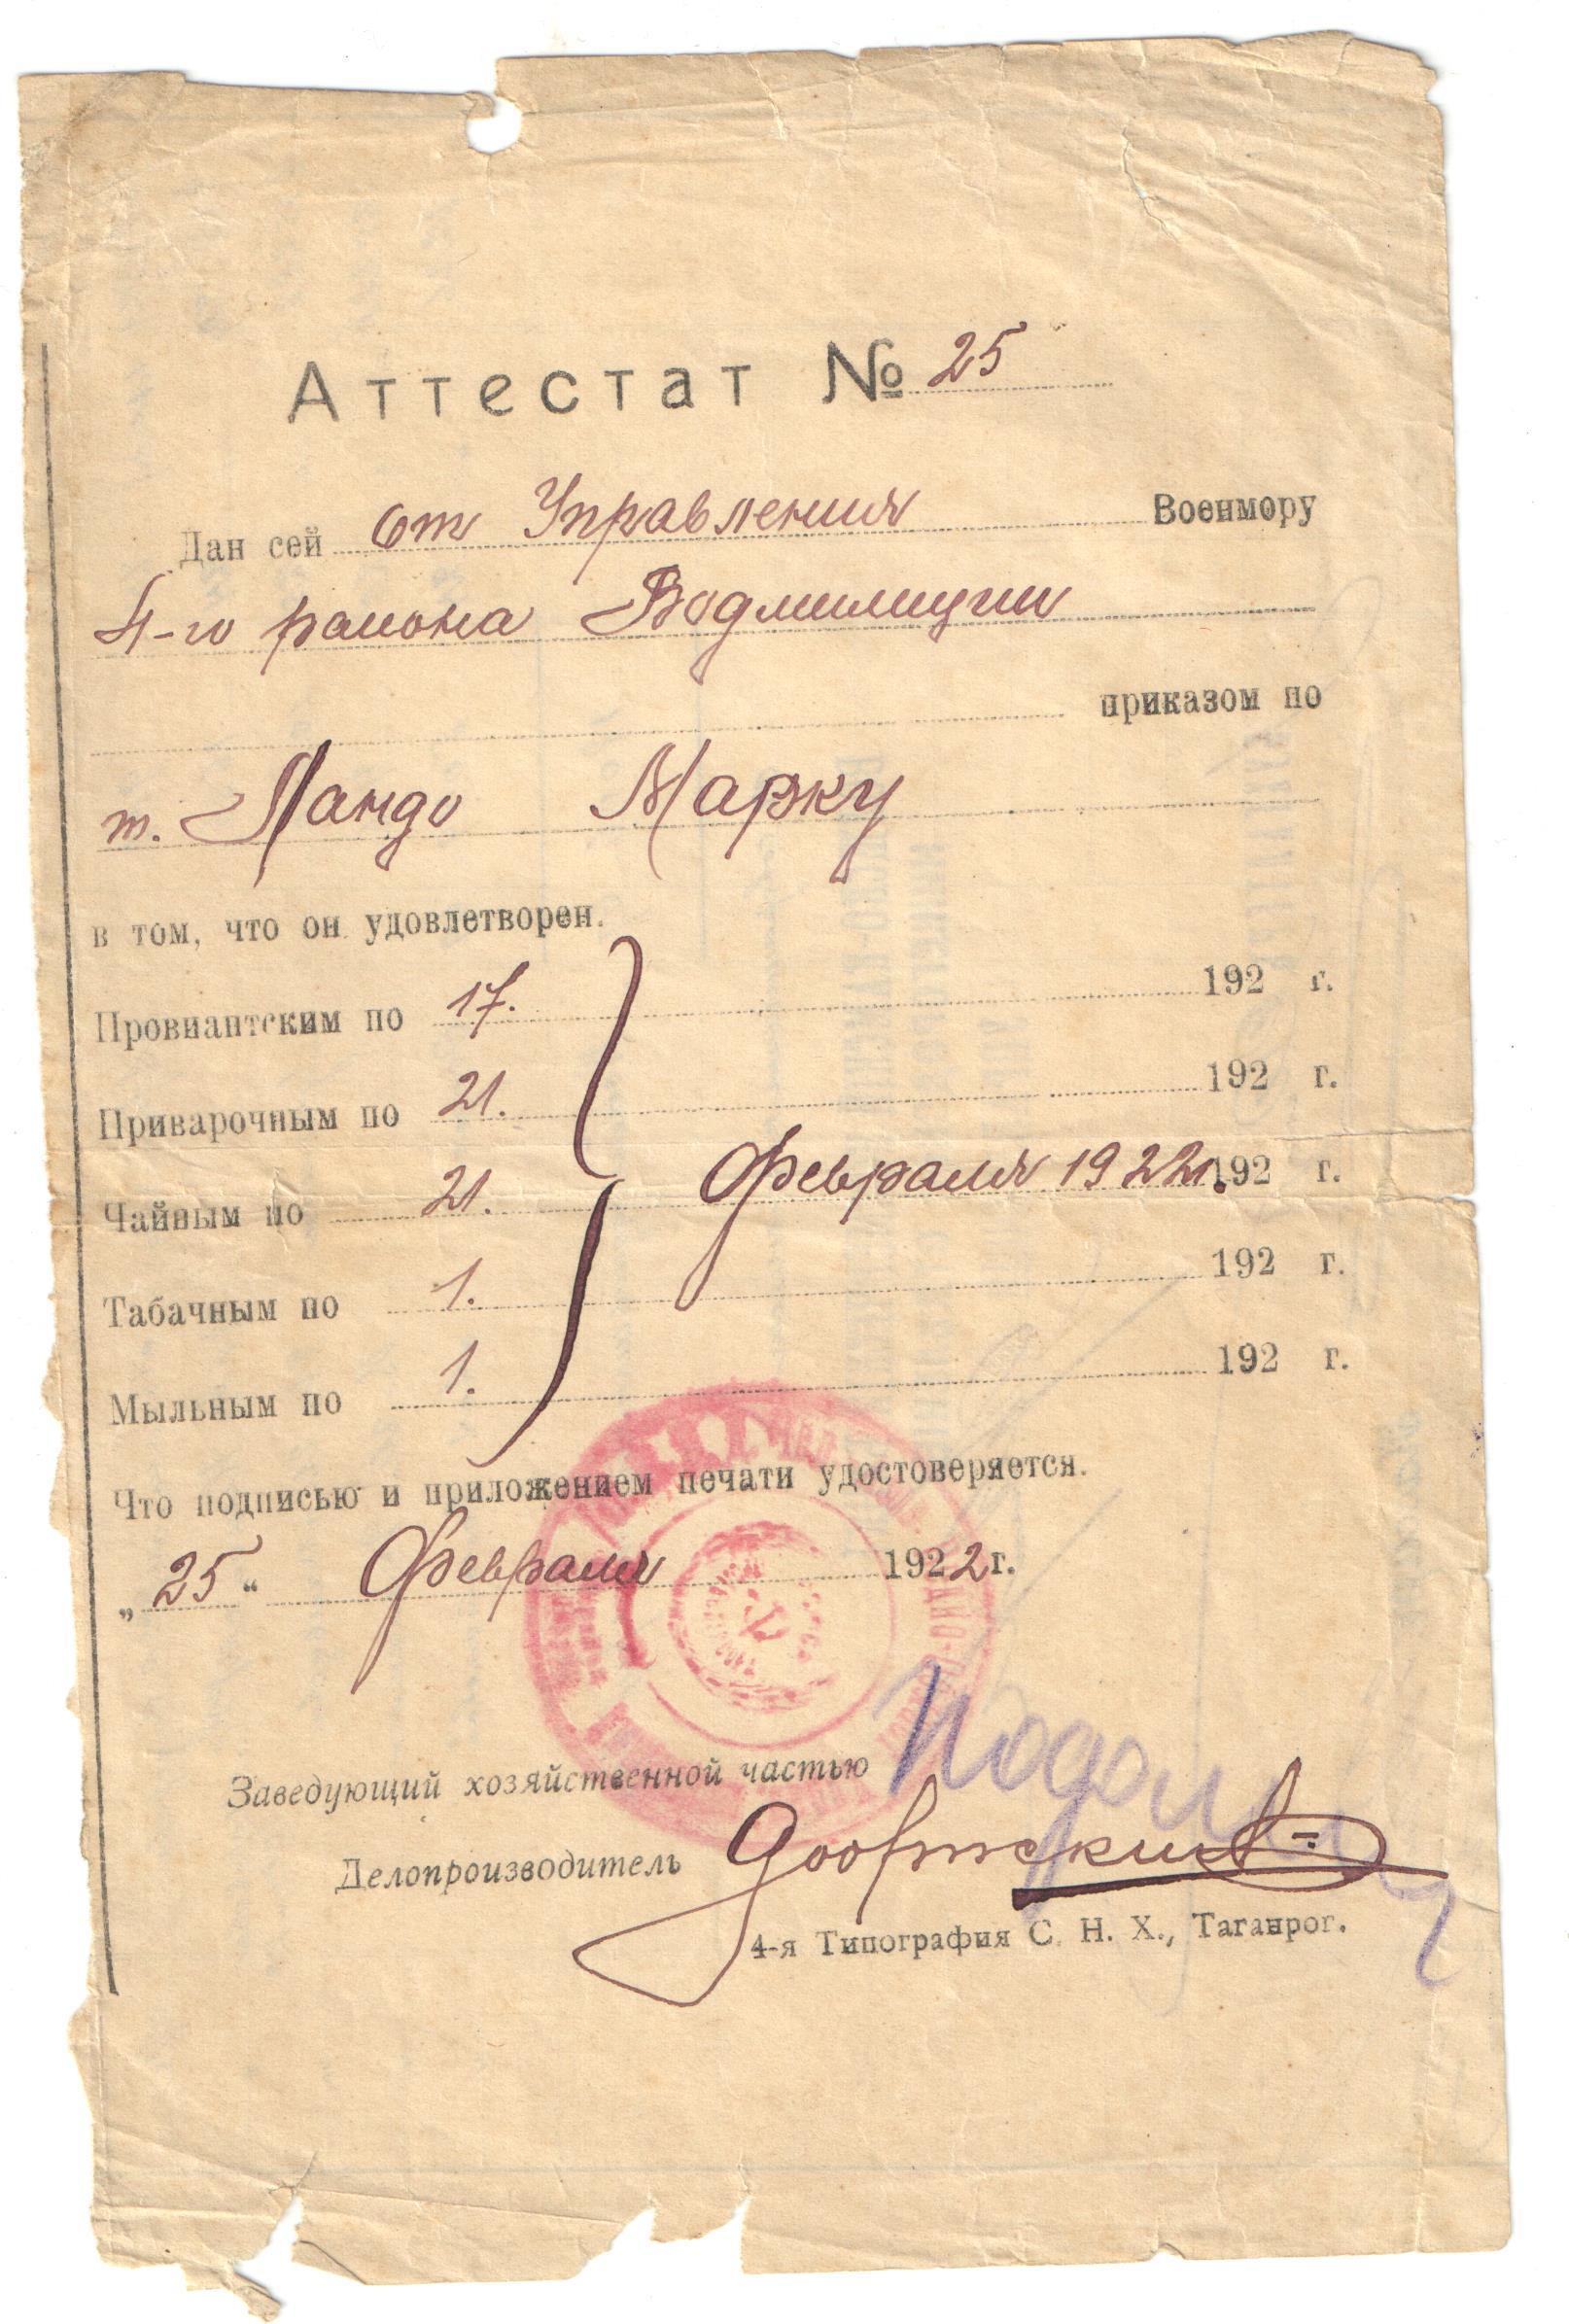 Аттестат № 25
Дан сей от Управления Военмору
4-го района Водмилиции
приказом по
т. Ландо Марку
в том, что он удовлетворен.
Провиантским по 17. 192 г.
Приварочным по 21. 192 г.
Чайным по 21. Февраля 1922г. 192 г.
Табачным по 1. 192 г.
Мыльным по 1. 192 г.
Что подписью и приложением печати удостоверяется.
„25“ Февраля 1922 г.
Заведующий хозяйственной частью
Делопроизводитель
4-я Типография С. Н. Х., Таганрог.